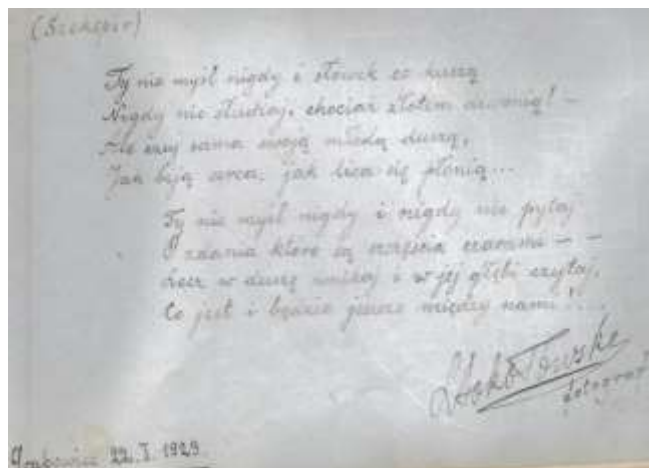 (Szekspir)
Ty nie myśl nigdy i słówek co kuszą
Nigdy nie słuchaj, chociaż złotem dzwonią! –
Ale czuj sama swoją młodą duszą,
Jak biją serca, jak lica się płonią...
Ty nie myśl nigdy i nigdy nie pytaj
O zdania które są szczęścia czarami – –
Lecz w duszę wnikaj i w jej głębi czytaj,
Co jest i będzie jeszcze między nami!...
fotograf
22. I. 1929